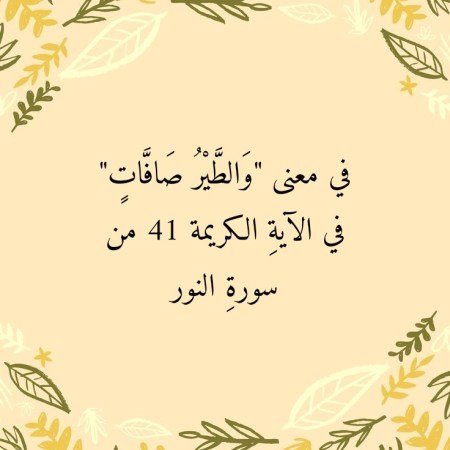 في معنى "وَالطَّيْرُ صَافَّاتٍ"
في الآيةِ الكريمة 41 من
سورةِ النور